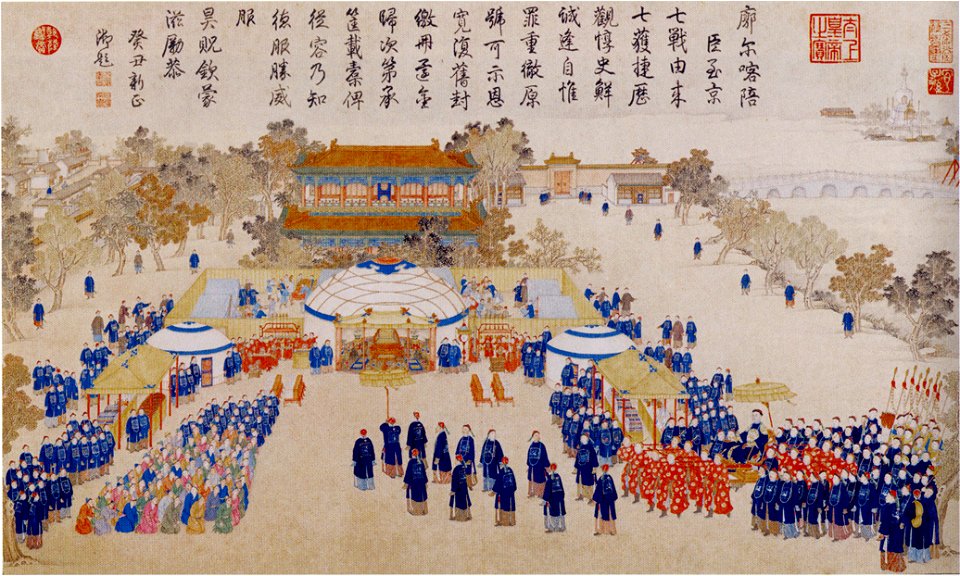 太上皇帝之寶
廓尔喀陪
臣至京
七戰由来
七獲捷歷
觀惇史鮮
誠逢自惟
罪重徹原
號可示恩
寬復舊封
繳冊還金
歸次第承
筐載素俾
從容乃知
德服勝威
服
昊貺欽蒙
滋勵恭
癸丑新正
御題